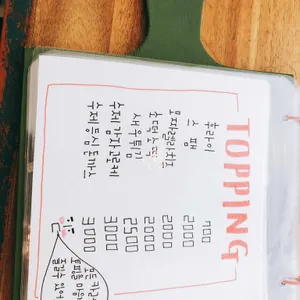 TOPPING
후라이 700
스팸 2000
모짜렐라치즈 2000
소떡소떡 2000
새우튀김 2500
수제 감자고로케 3000
수제 등심 돈까스 3000
모든 카레